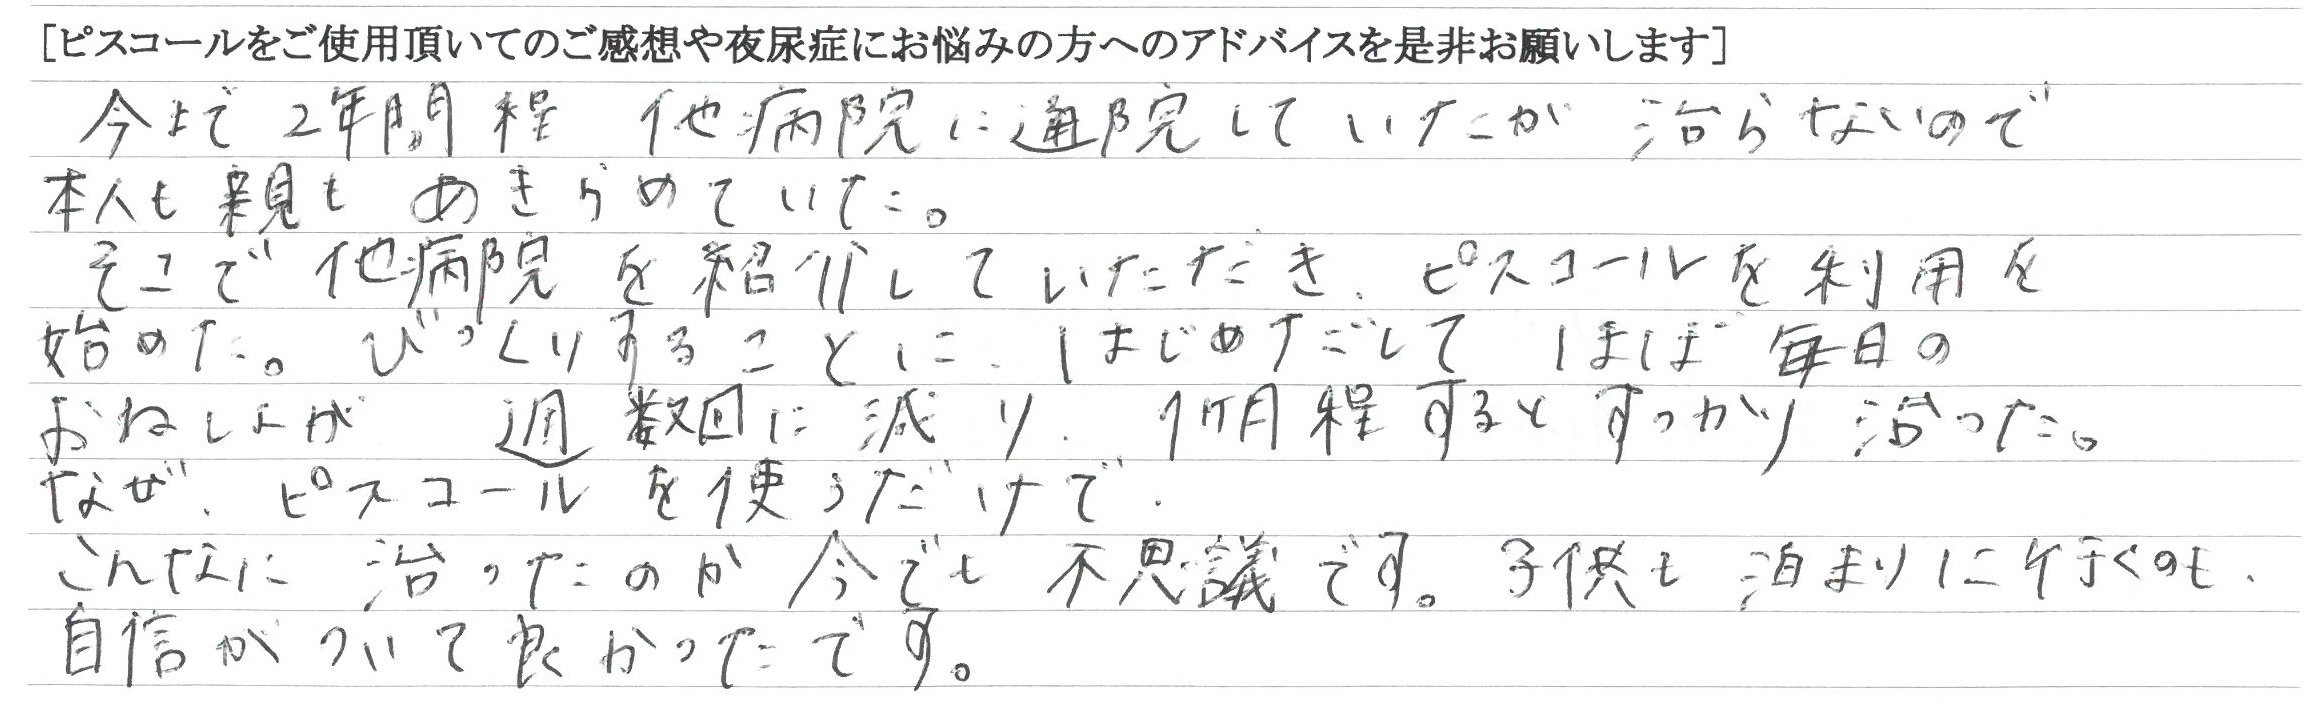 [ピスコールをご使用頂いてのご感想や夜尿症にお悩みの方へのアドバイスを是非お願いします]
今まで2年間程 他病院に通院していたが 治らないので
本人も親も あきらめていた。
そこで他病院を紹介していただき、ピスコールを利用を
始めた。びっくりすることに、はじめだして ほぼ毎日の
おねしょが 週数回に減り、1ヶ月程すると すっかり治った。
なぜ、ピスコールを使うだけで、
こんなに治ったのか今でも不思議です。子供も 泊まりに行くのも、
自信がついて良かったです。